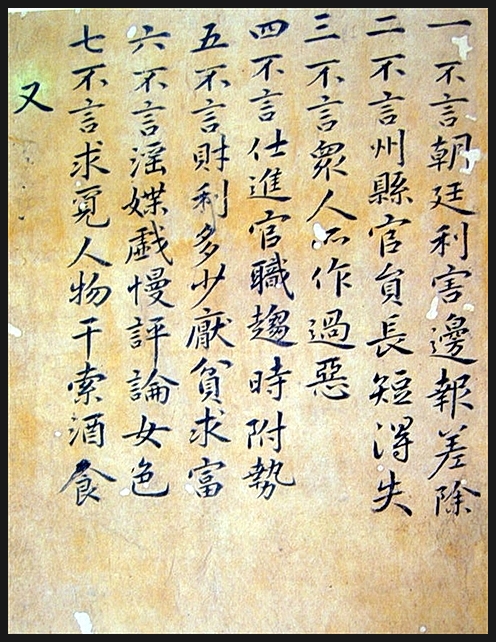 一不言朝廷利害邊報差除
二不言州縣官員長短淂失
三不言衆人所作過惡
四不言仕進官職趨時附勢
五不言財利多少厭貧求富
六不言滛媟戲慢評論女色
七不言求覓人物干索酒食
又